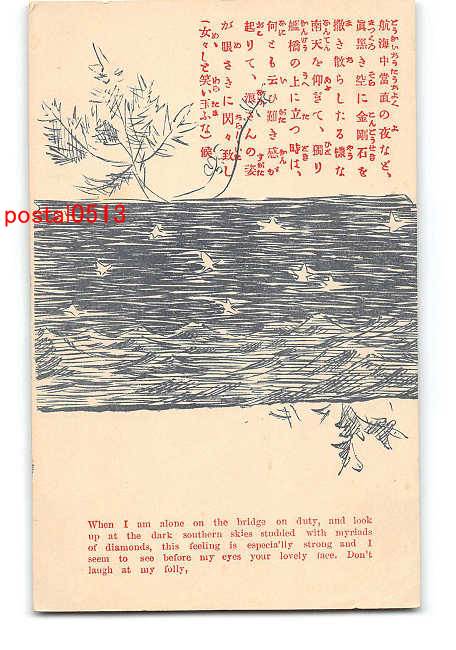 航海中當直の夜など、
眞黑き空に金剛石を
撒き散らしたる樣な
南天を仰ぎて、獨り
艦橋の上に立つ時は、
何とも云ひ難き感が
起りて、浪さんの姿
が眼さきに閃々致し
(女々しと笑ひ玉ふな)候
postal0513
When I am alone on the bridge on duty, and look
up at the dark southern skies studded with myriads
of diamonds, this feeling is especia'lly strong and I
seem to see before my eyes your lovely face. Don't
laugh at my folly,